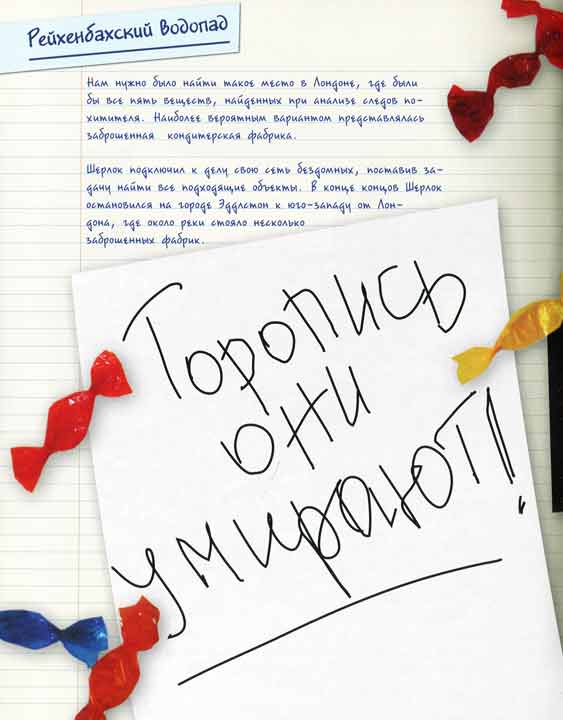 Рейхенбахский Водопад
Нам нужно было найти такое место в Лондоне, где были
бы все пять веществ, найденных при анализе следов по-
хитителя. Наиболее вероятным вариантом представлялась
заброшенная кондитерская фабрика.
Шерлок подключил к делу свою сеть бездомных, поставив за-
дачу найти все подходящие объекты. В конце концов Шерлок
остановился на городе Эддлстон к юго-западу от Лон-
дона, где около реки стояло несколько
заброшенных фабрик.
Торопись
они
умирают!